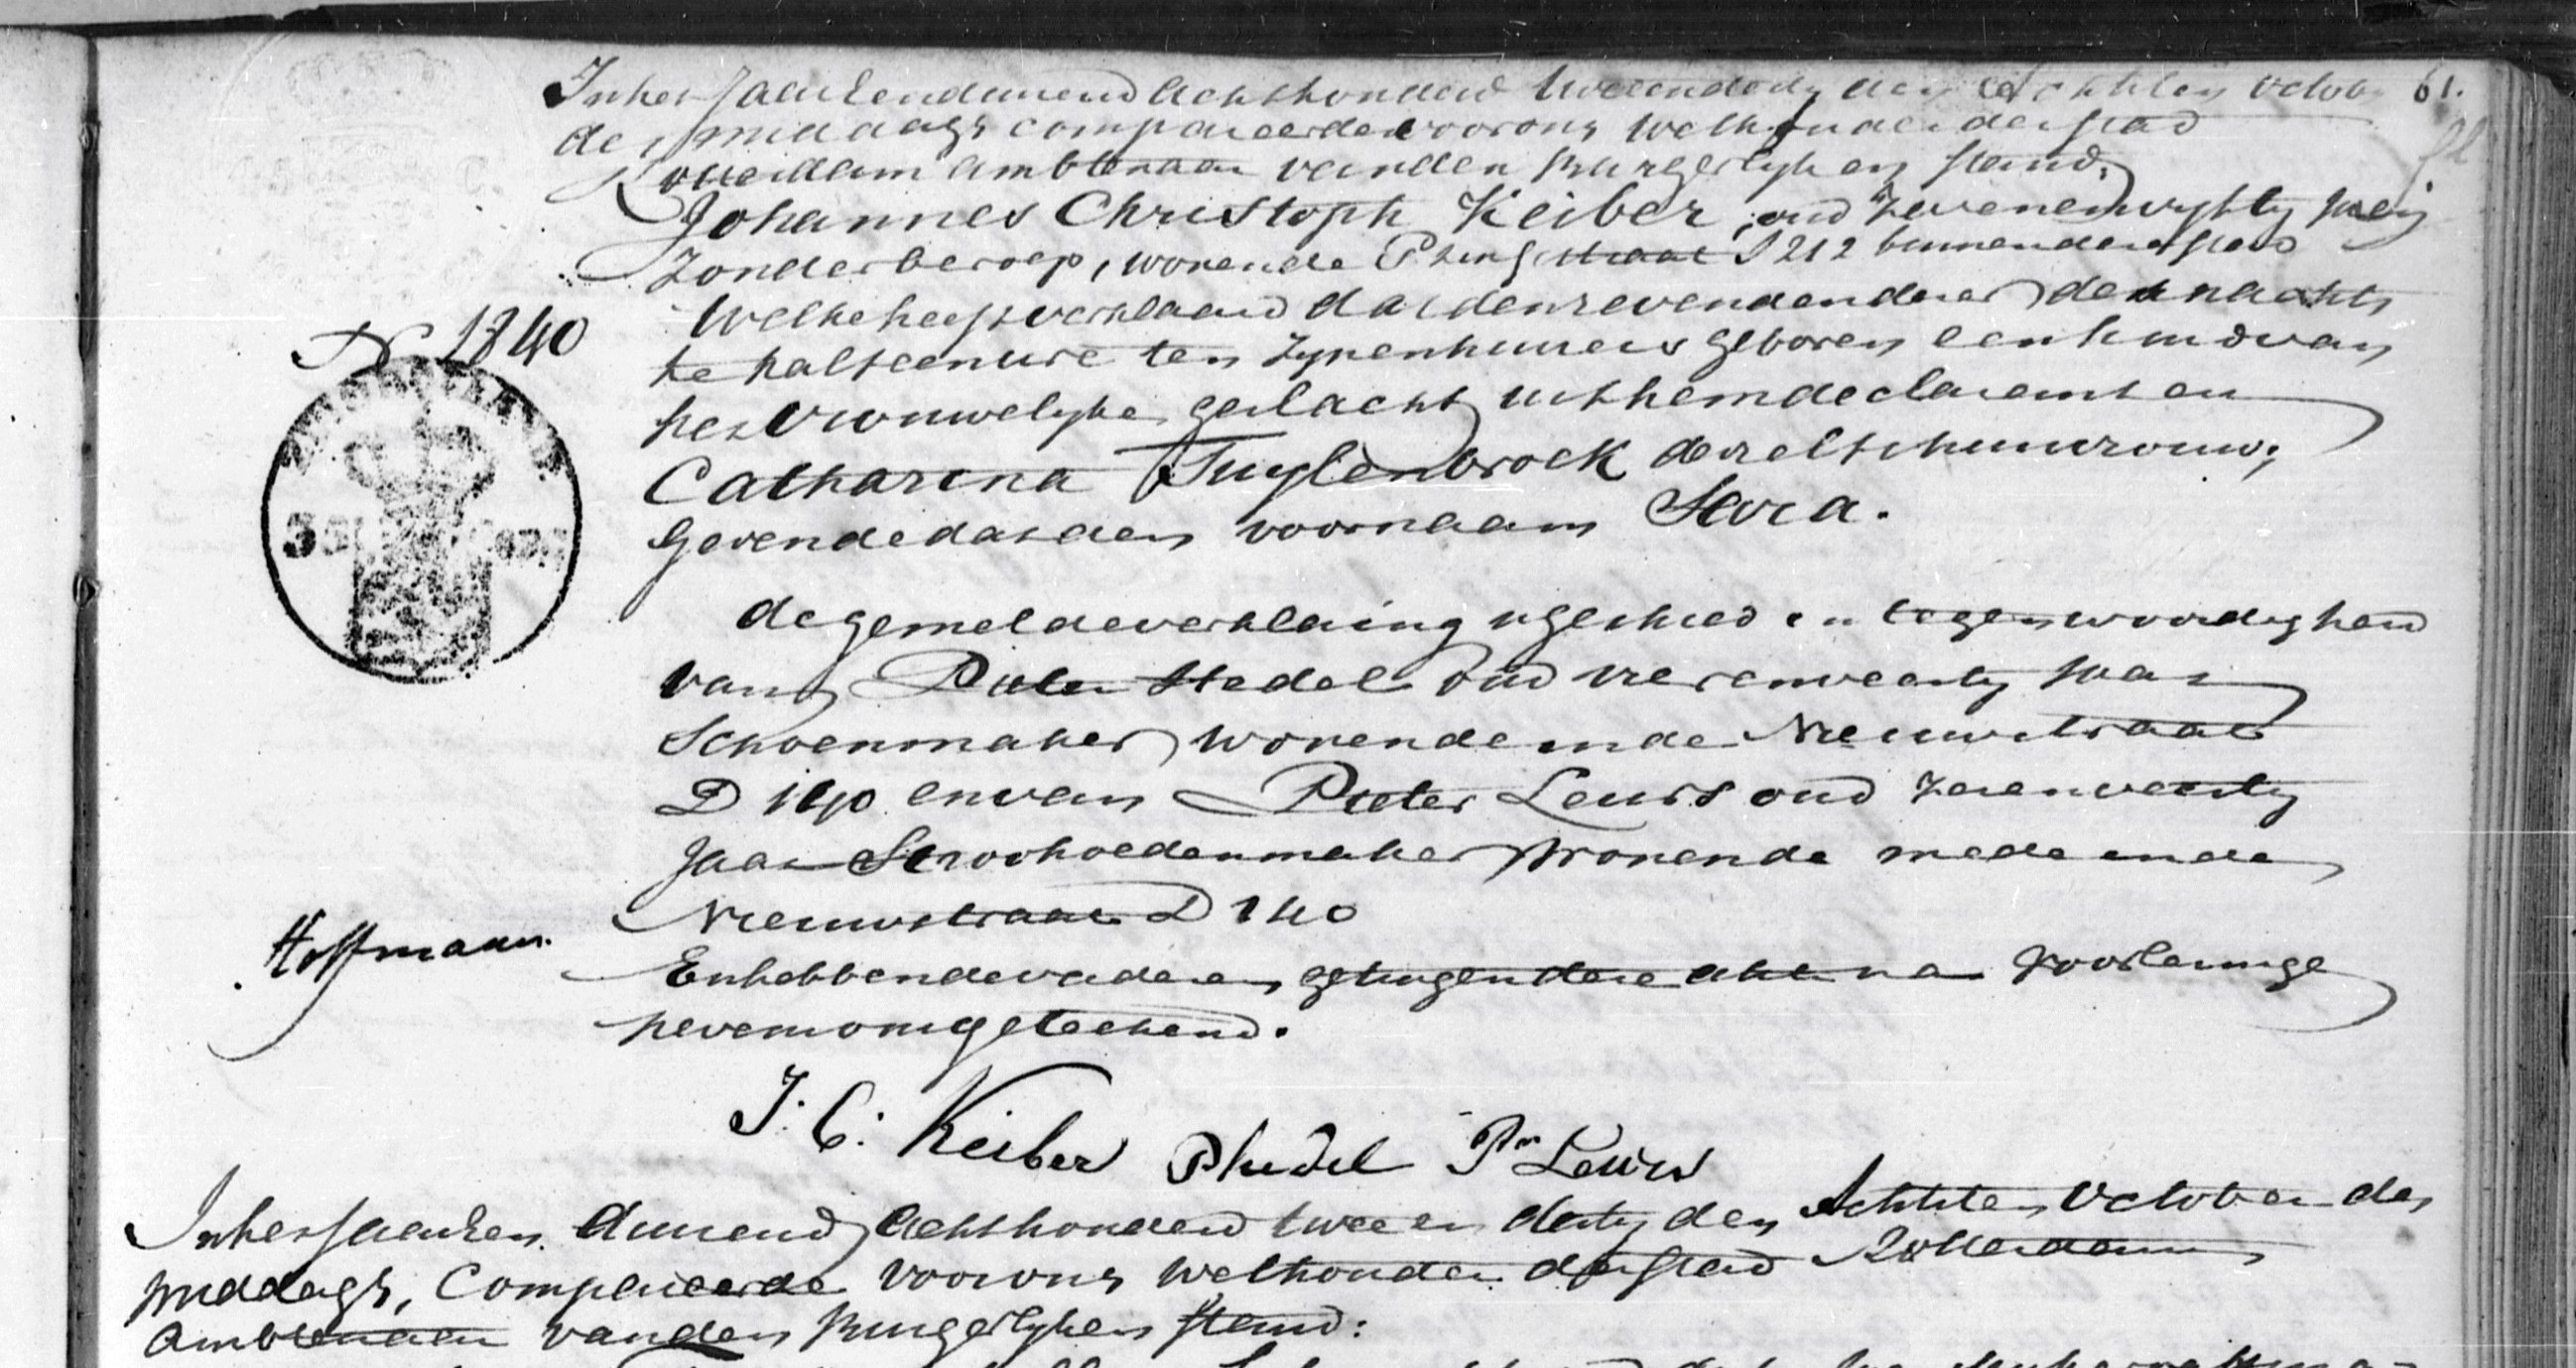 In het Jaar Eenduizend Achthonderd tweeendertig den Achtsten Octob 61.
des middags compareerde voor ons Wethouder der stad
Rotterdam Ambtenaar van den Burgerlyken stand,
Johannes Christoph Keiber, oud zevenenvyftig jaar
zonder beroep, wonende straat I 212 binnen deze stad
Welke heeft verklaard dat den zevenden dezer des nachts
te half een ure ten zynen huize is geboren een kind van
het Vrouwelyke geslacht uit hem declarant en
Catharina Tuylenbroek deszelfs huisvrouw;
Gevende daaraan voornaam Sara.
N 1340
de gemelde verklaring is geschied in tegenwoordigheid
van Pieter Hedel oud vierenveertig jaar
Schoenmaker wonende in de Nieuwstraat
D 140 en van Pieter Leurs oud zevenveertig
Jaar Stroohoedenmaker wonende mede in de
Nieuwstraat D 140
Hoffmann.
En hebben de vader en getuigen deze akte na voorlezinge
nevens ons geteekend.
J. C. Keiber PHedel Pr Leurs
In het Jaar Een duizend Achthonderd twee en dertig den Achtsten October des
middags, Compareerde voor ons Wethouder der stad Rotterdam
Ambtenaar van den Burgerlyken stand: